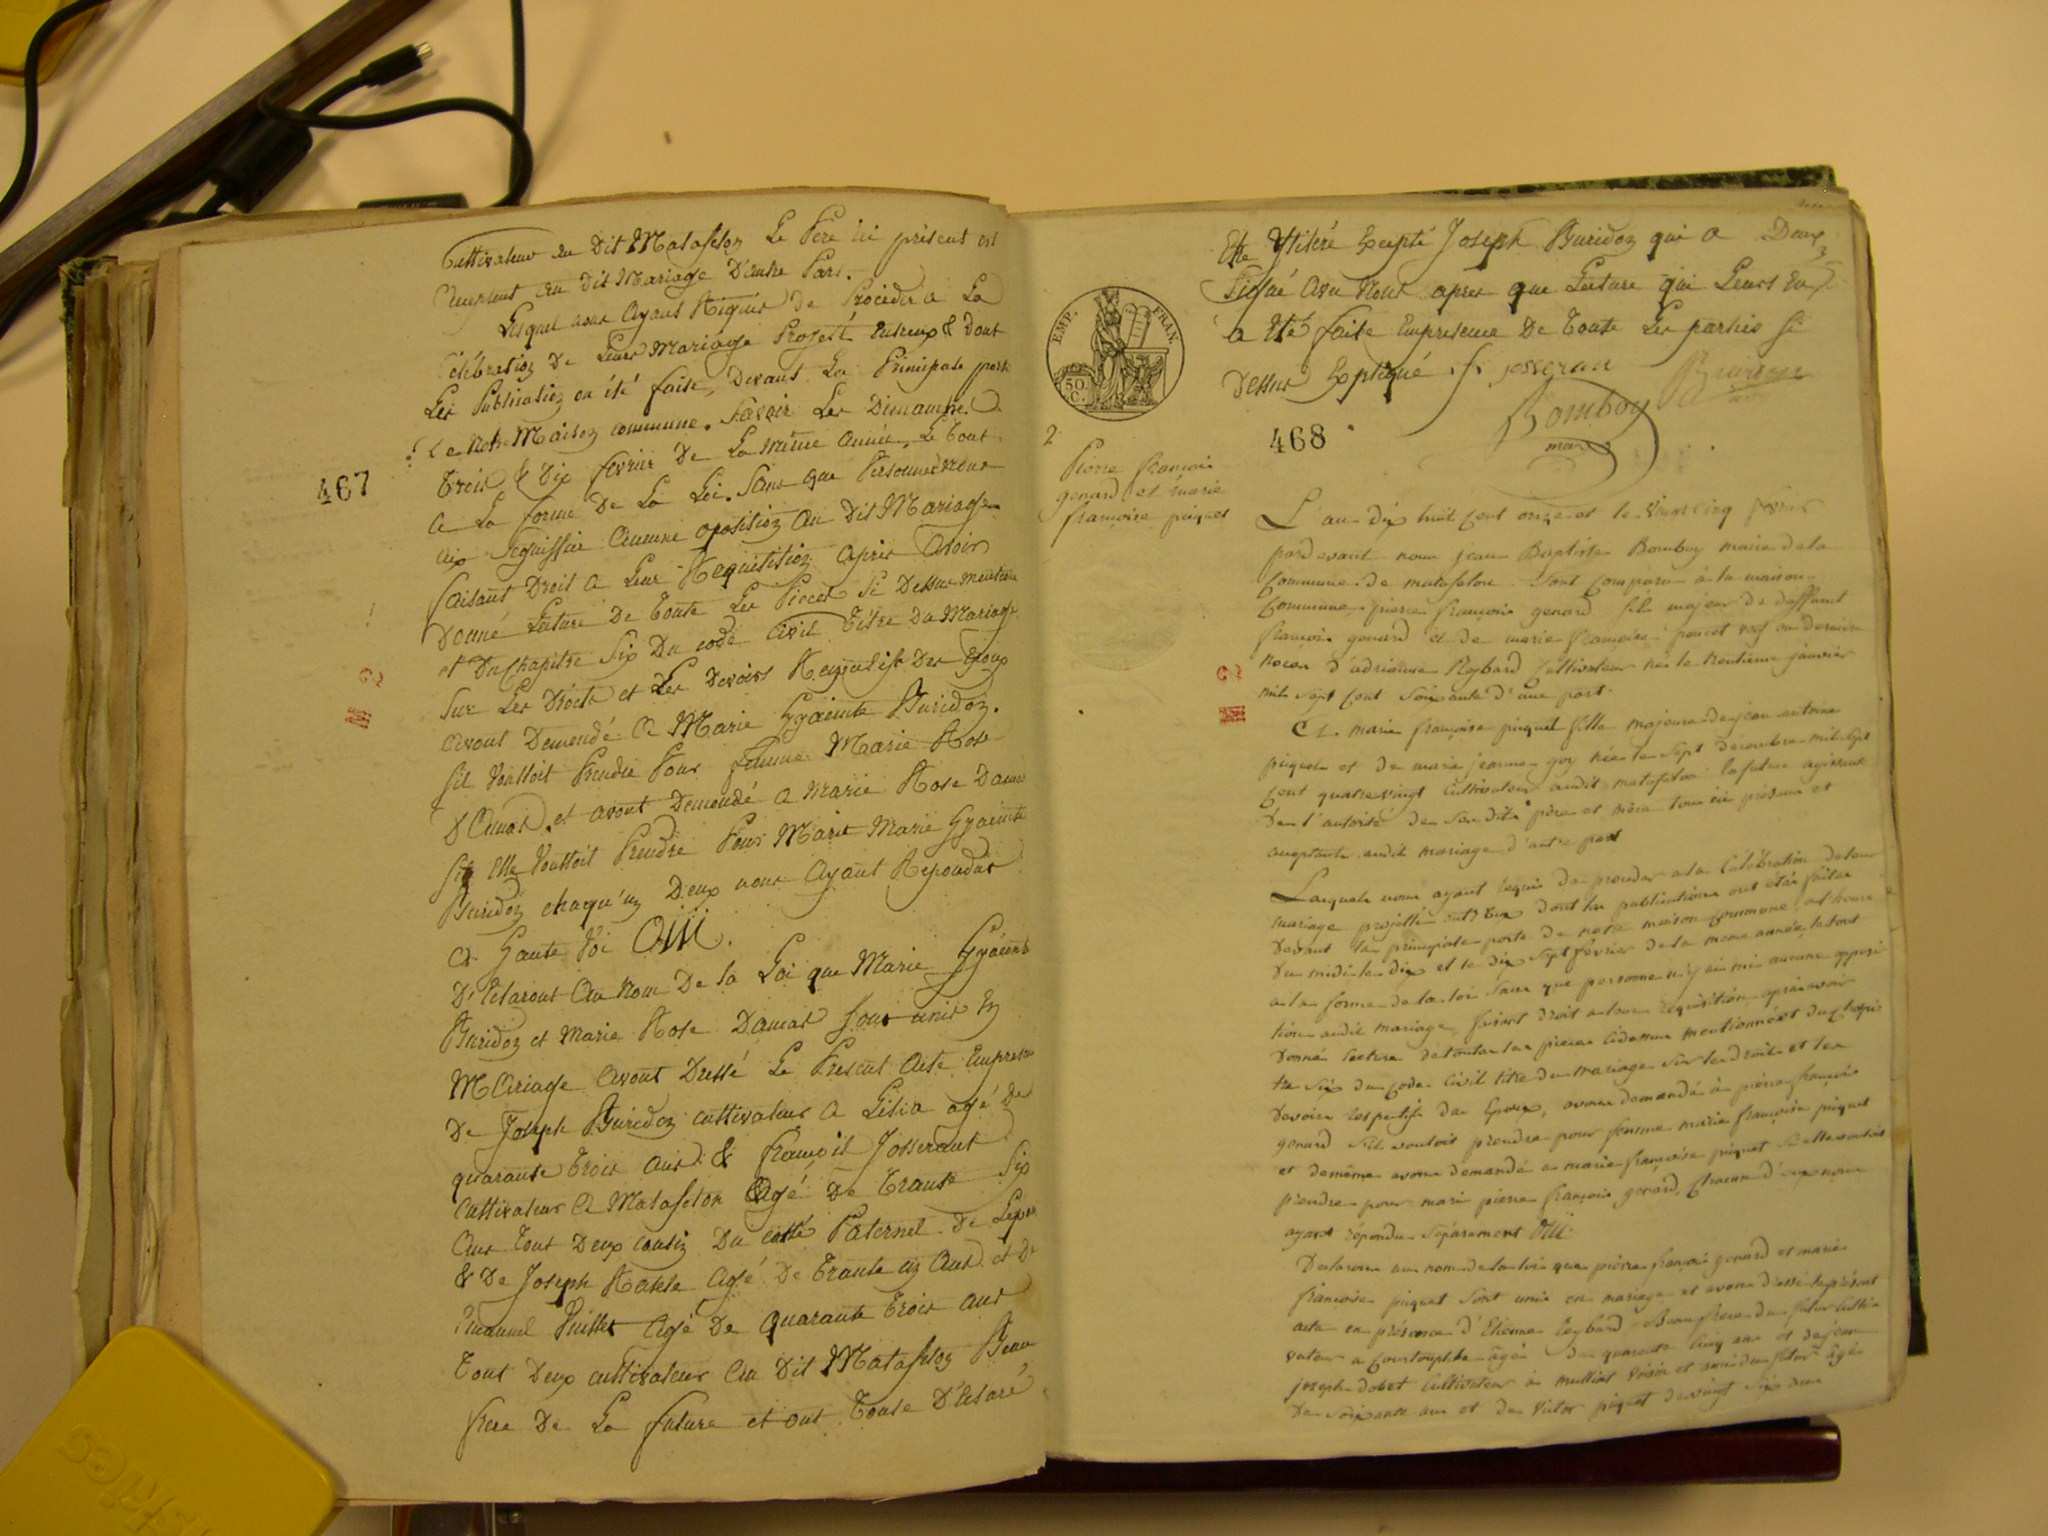 Cultivateur au Dit Matafelon Le Pere ici présent est
au dit Mariage D'autre Part.
Lesquel nous Ayant Réquis De Proceder a La
Célébration De Leur Mariage Projeté Entreux & Dont
Les Publication on été faite, Devant La Principale porte
De Notre Maison commune. Savoir Les Dimanche
Trois & Dix fevrier De La même année, Le Tout
a La forme De La Loi. Sans que Personne
aucune oposition Au Dit Mariage
faisant Droit a Leur Requisition apres Avoir
Donné Lecture De Toute Les Pieces Si Dessus mentionné
et Du Chapitre Six Du code Civil Titre Du Mariage
467
Sur Les Droits et Les Devoirs Respectif Des Epoux
avont Demendé A Marie Hyacinte Buridon.
Sil Voulloit Prendre Pour femme Marie Rose
Damas, et avont Demendé a Marie Rose Damas
Si Elle Voulloit Prendre Pour Marit Marie Hyacinte
Buridon chaqu'un Deux nous Ayant Repondus
A Haute Voi OUI.
D'Eclaront Au Nom De la Loi que Marie Hyacinte
Buridon et Marie Rose Damas sont unis En
Mariage Avont Dressé Le Present Acte Enpresence
De Joseph Buridon cultivateur a agé De
quarante Trois ans & François Josserant
Cultivateur A Matafelon Agé De Trante Six
Ans Tout Deux cousin Du cotté Paternel De Lepoux
& De Joseph Agé De Trante un Ans et De
Vuillet Agé De quarante Trois ans
Tout Deux cultivateur Au Dit Matafelon Beau
frere De La future et ont Toute D'Eclaré
Etre Excepté Joseph Buridon qui a Deux
Signé Avec Nous apres que Lecture qui Leurs En
a Eté faite Enpresence De Toute Les parties Si
Dessus Expliqué f. josseran Buridon
Bomboy
maire
EMP. FRAN.
50.
C.
468
2
Pierre François
genard et marie
françoise piquet
L'an dix huit cent onze et le Vingt cinq fevrier
pardevant nous jean Baptiste Bomboy maire de la
Commune de matafelon Sont Comparu à la maison
Commune, pierre françois genard fils majeur de deffunt
françois genard et de marie françoise poncet veuf en derniere
noces d'adrienne Reybard Cultivateur né le trentieme janvier
mil Sept Cent Soixante d'une part.
Et marie françoise piquet fille majeure de jean antoine
piquet et de marie jeanne goy née le Sept décembre mil Sept
Cent quatre vingt Cultivateur audit matafelon la future agissant
De l'autorité de Ses dits père et mère tous ici présent et
acceptants audit mariage d'autre part
Lesquels nous ayant requis de proceder a la Célébration de leur
mariage projetté entr'eux dont les publications ont étés faites
Devant la principale porte de notre maison Commune a l'heure
Du midi le dix et le dix Sept fevrier de la meme année, le tout
a la forme de la loi Sans que personne n'y ait mi aucune opposi
tion audit mariage, faisant droit a leur réquisition après avoir
Donné lecture de toutes les pieces cidessus mentionnés et du Chapi
tre Six du Code Civil titre du mariage Sur les droits et les
Devoirs respectifs des Epoux, avons demandé à pierre françois
genard S'il vouloit prendre pour femme marie françoise piquet
et demême avons demandé a marie françoise piquet Si elle vouloit
prendre pour mari pierre françois genard, Chacun d'eux nous
ayant répondu Séparement OUI.
Declarons au nom de la loi que pierre françois genard et marie
françoise piquet Sont unis en mariage et avons dressé le présent
acte en présence d'Etienne Reybard Beau frere du futur Culti
vateur a agé de quarante Cinq ans et de jean
joseph dobet Cultivateur a mulliat voisin et ami du futur agé
De Soixante ans et de victor piquet de vingt Six ans